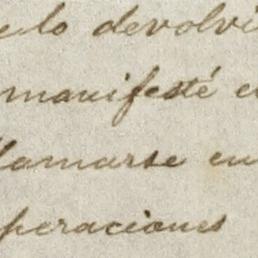 elo devolvi
manifesté e
llamarse en
peraciones